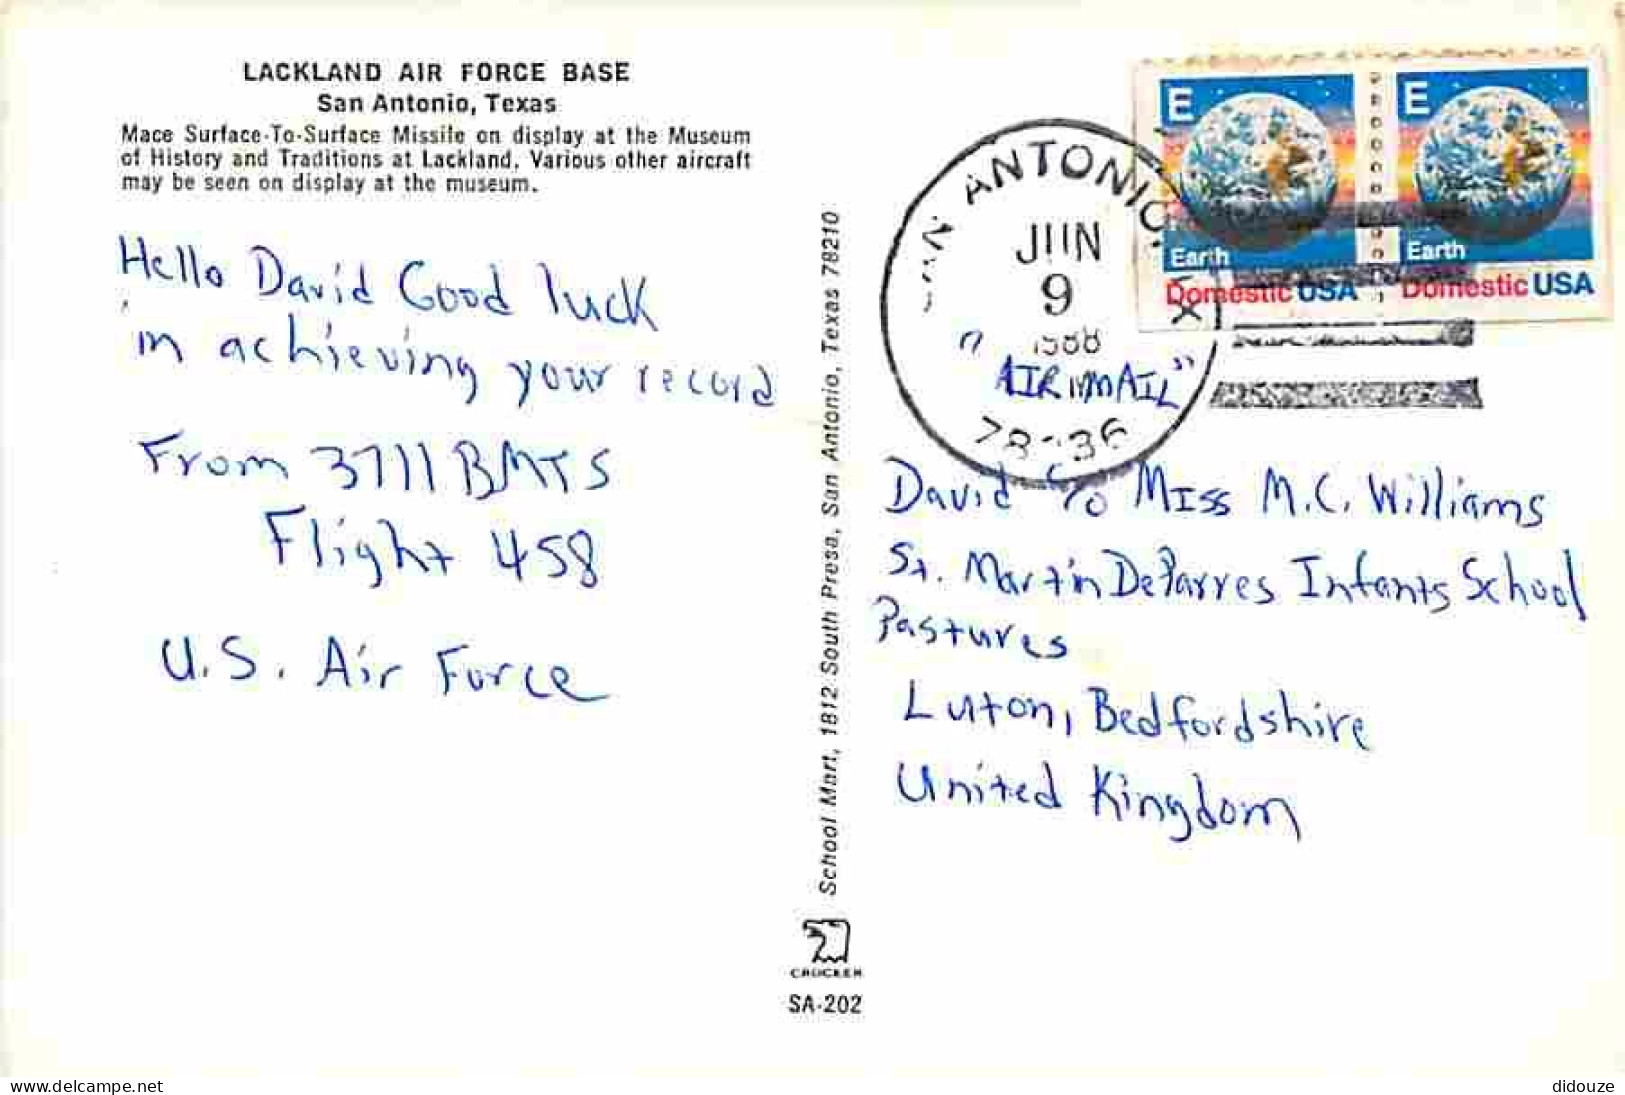 LACKLAND AIR FORCE BASE
San Antonio, Texas
Mace Surface-To-Surface Missile on display at the Museum
of History and Traditions at Lackland. Various other aircraft
may be seen on display at the museum.
Hello David Good luck
in achieving your record
From 3711 BMTS
Flight 458
U.S. Air Force
School Mart, 1812 South Presa, San Antonio, Texas 78210
CROCKER
SA-202
ANTONIO
JUN
9
1988
"AIRMAIL"
E
Earth
Domestic USA
E
Earth
Domestic USA
David c/o Miss M.C. Williams
St. Martin DePorres Infants School
Pastures
Luton, Bedfordshire
United Kingdom
www.delcampe.net
didouze